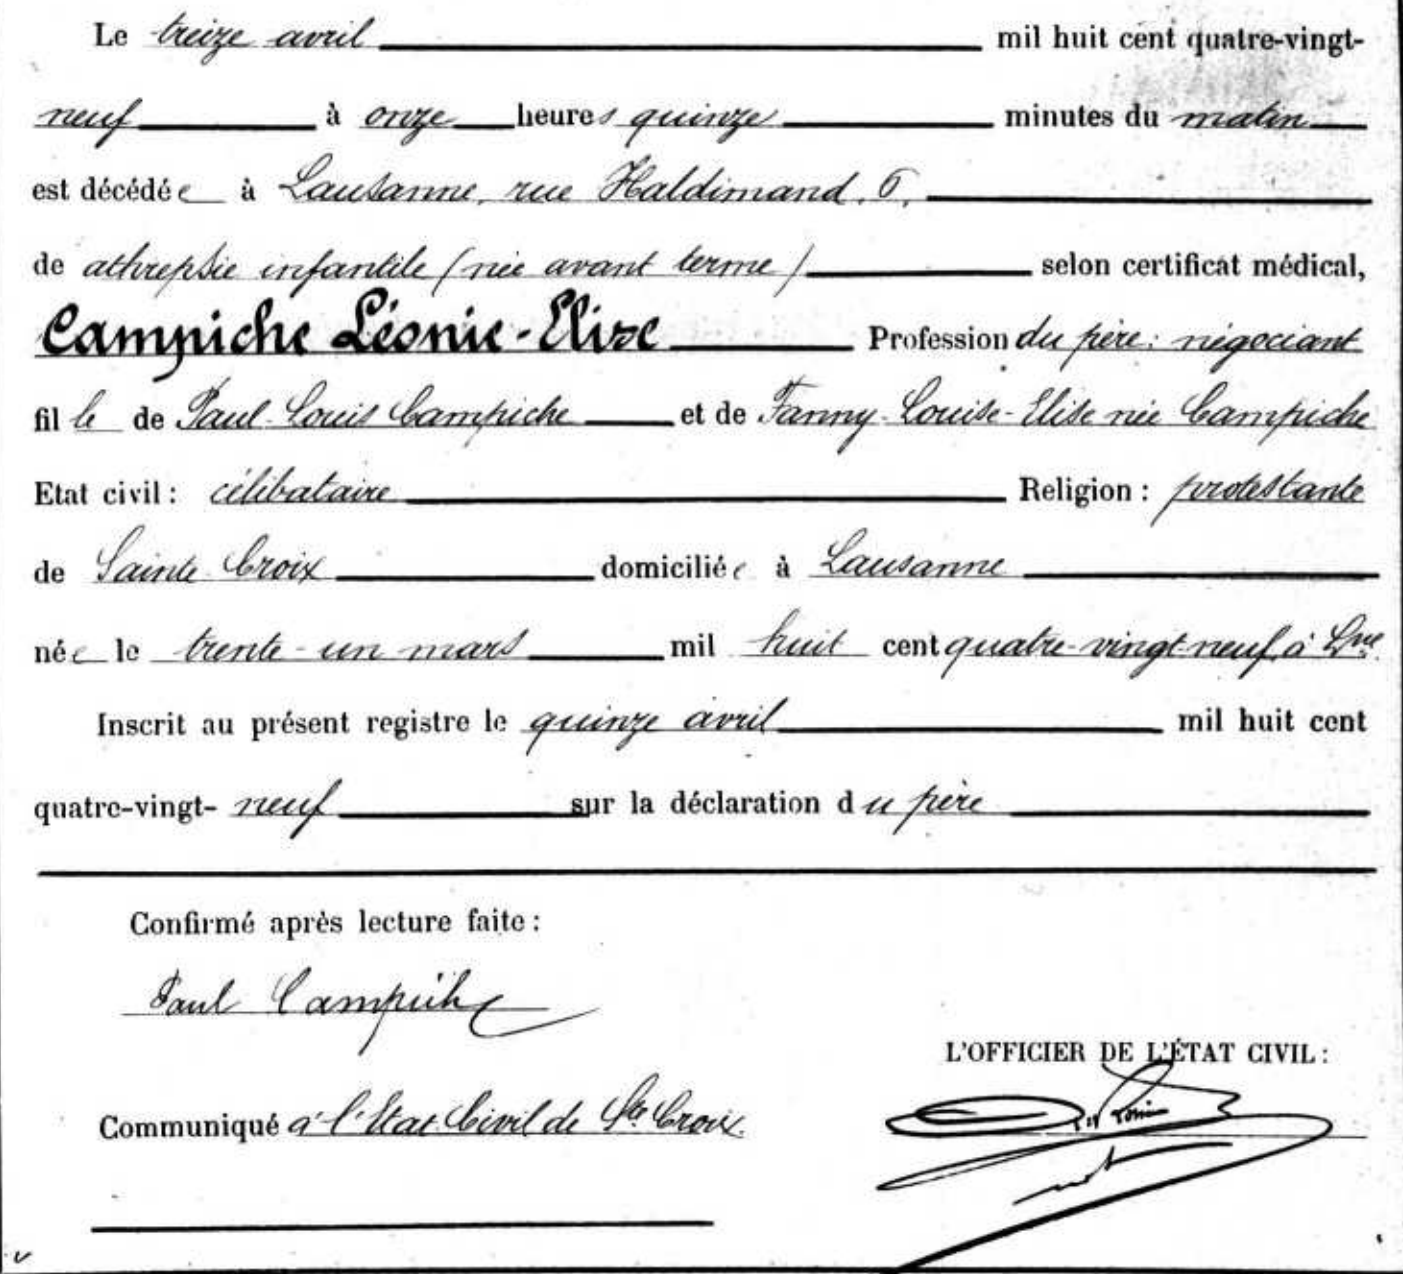 Le treize avril mil huit cent quatre-vingt-
neuf à onze heures quinze minutes du matin
est décédée à Lausanne, rue Haldimand, 6,
de athrepsie infantile (née avant terme) selon certificat médical,
Campiche Léonie-Elise Profession du père: négociant
fille de Paul-Louis Campiche et de Fanny-Louise-Elise née Campiche
Etat civil: célibataire Religion: protestante
de Sainte Croix domiciliée à Lausanne
née le trente-un mars mil huit cent quatre-vingt-neuf, à Lne.
Inscrit au présent registre le quinze avril mil huit cent
quatre-vingt-neuf sur la déclaration du père
Confirmé après lecture faite:
Paul Campiche
L'OFFICIER DE L'ÉTAT CIVIL:
Communiqué à l'Etat Civil de Ste Croix.